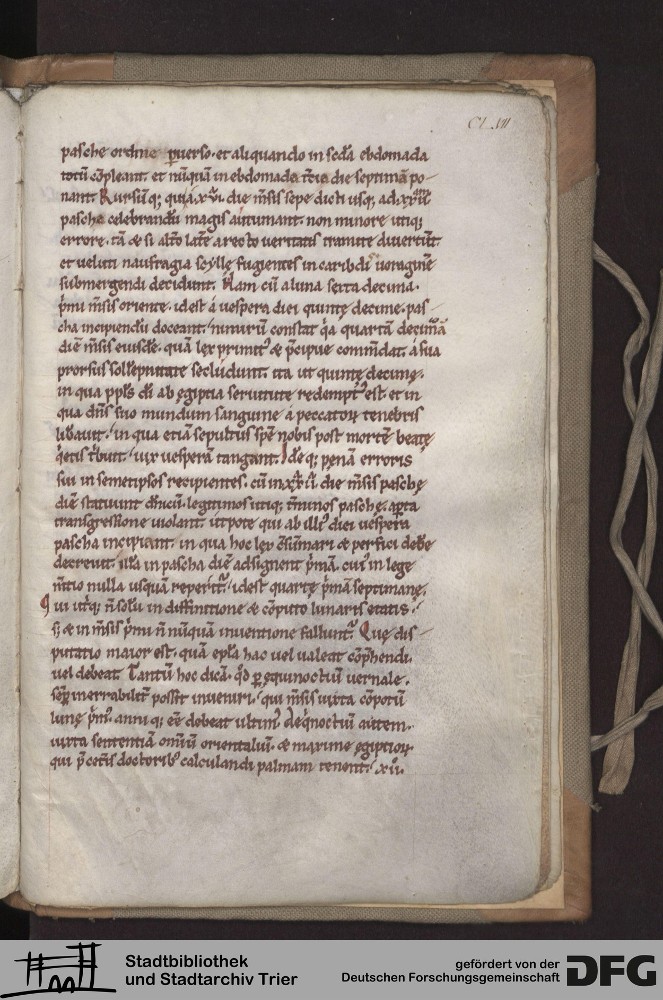 CLVII
pasche ordine ꝑuerso. et aliquando in scďa ebdomada
totū cōpleant. et nūquā in ebdomade t̄cia die septimā po-
nant. Rursūq; quia xvi. die m̄sis sepe dicti usq; ad xxii
pascha celebrandū magis autumant. non minore utiq;
errore. tā & si alto late a recto ueritatis tramite diuertūt
et ueluti naufragia scylle fugientes in caribdi uoragine
submergendi decidunt. Nam cū a luna sexta decima.
p̄mi m̄sis oriente. idest a uespera diei quintę decime. pas-
cha incipiendū doceant. nimirū constat q̇a quartā decimā
diē m̄sis eiusdē. quā lex primit᾽ & p̄cipue commdat. a sua
prorsus sollēpnitate secludunt. ita ut quintę decimę.
in qua ppl̄s dī ab egiptia seruitute redempt᾽ est. et in
qua dn̄s suo mundum sanguine a peccatoꝝ tenebris
libauit. in qua etiā sepultus spē nobis post mortē beatę
q̇etis t̄buit. uix uesperā tangant. Ideq; penā erroris
sui in semetipsos recipientes. cū in xxii. die m̄sis paschę
diē statuunt dn̄icū. legitimos utiq; t̄minos paschę. aꝑta
transgressione uiolant. utpote qui ab illi᾽ diei uespera
pascha incipiant. in qua hoc lex c̄sūmari & perfici debe
decreuit. illā in pascha diē adsignent p̄mā. cui᾽ in lege
m̄tio nulla usquā reperit̄. idest quartę p̄mā septimanę.
Qui ut̄q; n̄ solū in diffinitione & cōputo lunaris etatis.
s; & in m̄sis p̄mi n̄ nūquā inuentione fallunt̄. Quę dis-
putatio maior est. quā epl̄a hac uel ualeat cōp̄hendi.
uel debeat. Tantū hoc dicā. qd ꝑ equinoctiū uernale.
sēꝑ inerrabilit̄ possit inueniri. qui m̄sis iuxta cōpotū
lunę p̄m᾽. anni q; eē debeat ultim᾽. Aeq̇noctiū autem.
iuxta sententiā omiū orientaliū. & maxime egiptioꝝ
qui p̄ cet̄is doctorib᾽ calculandi palmam tenent. xii.
Stadtbibliothek
und Stadtarchiv Trier
gefördert von der
Deutschen Forschungsgemeinschaft
DFG